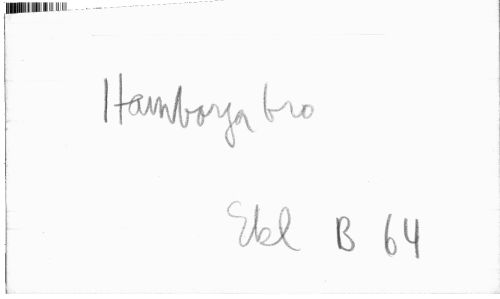 Hamborga bro
Ekl B 64